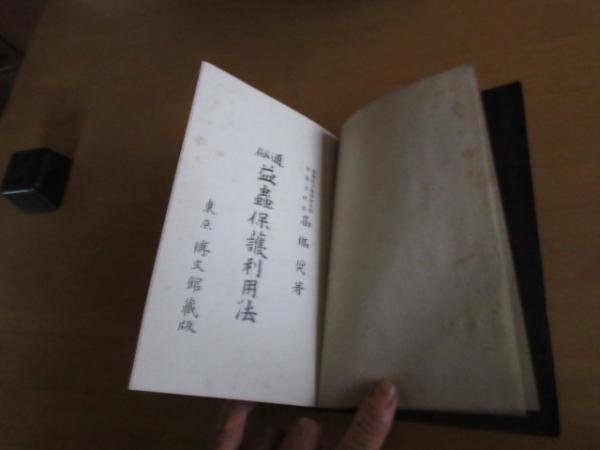 高橋奨著
通俗
益蟲保護利用法
東京 博文館蔵版